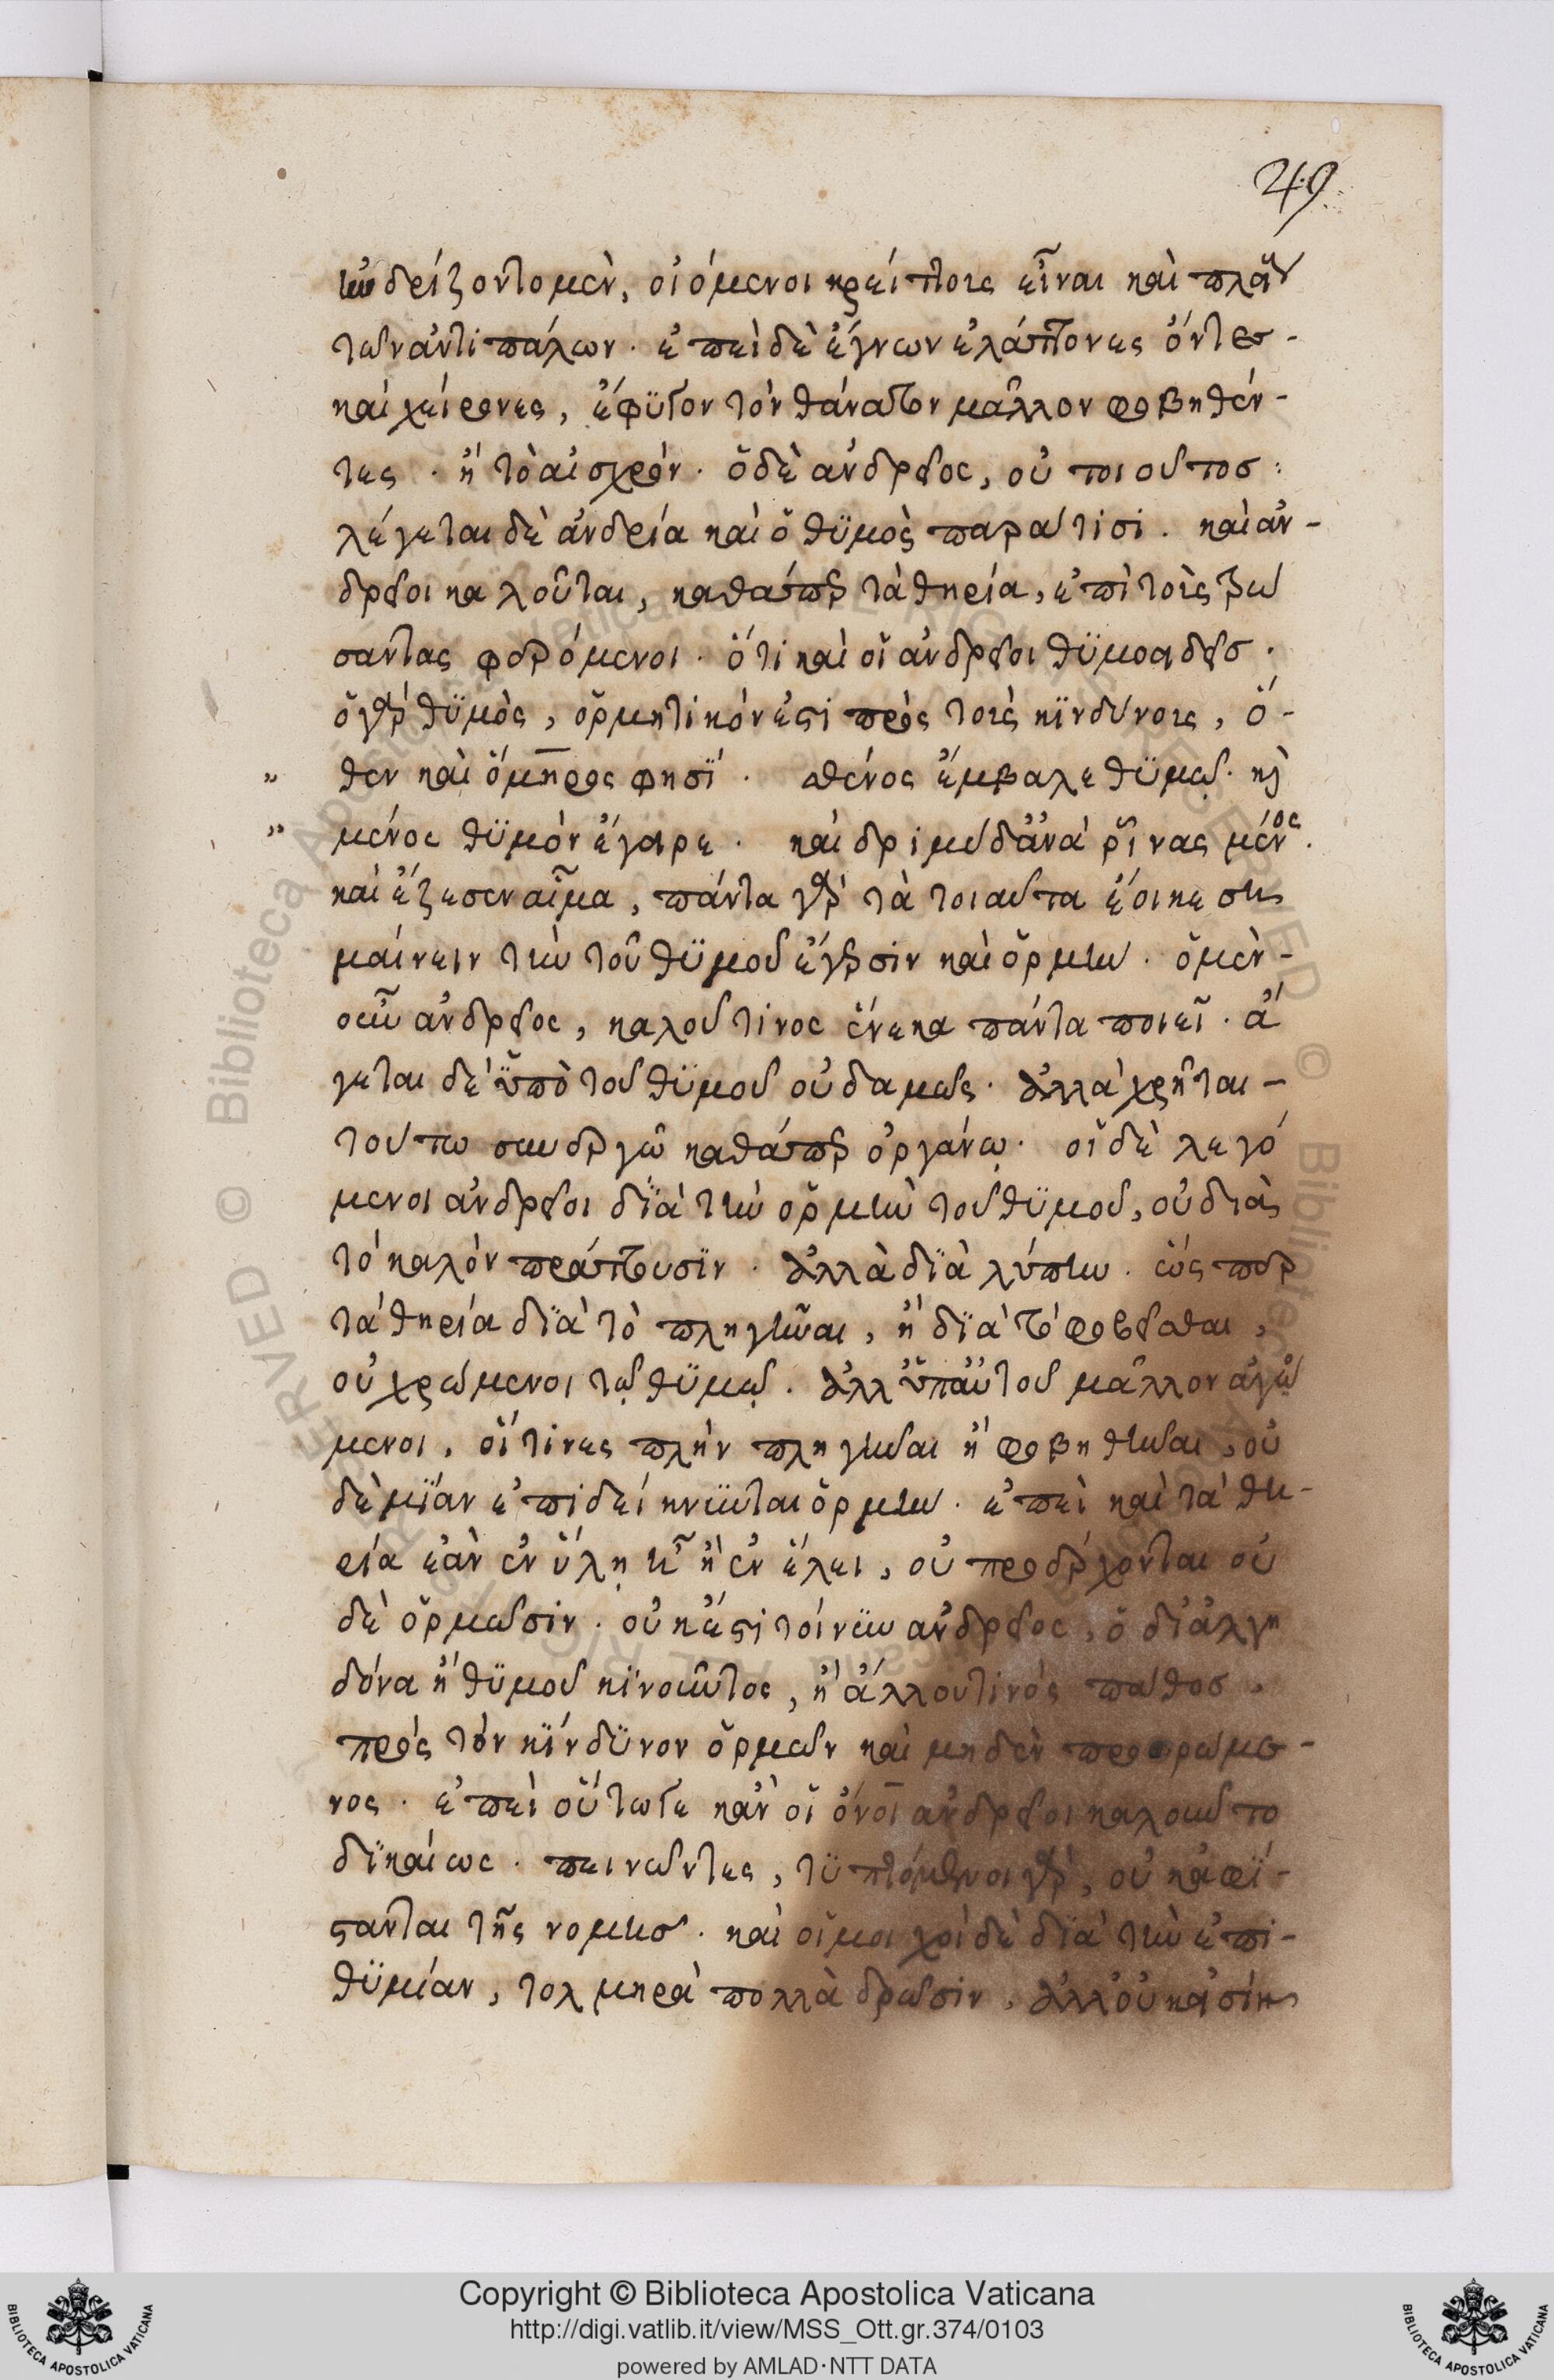 49
ηὐδρίζοντο μὲν, οἰόμενοι κρείττοις εἶναι καὶ πλείους
τῶν ἀντιπάλων. ἐπεὶ δὲ ἔγνων ἐλάττονες ὄντες -
καὶ χείρονες, ἔφυγον τὸν θάνατον μᾶλλον φοβηθέν-
τες. ἢ τὸ αἰσχρόν. ὁ δὲ ἀνδρεῖος, οὐ τοιοῦτος:
λέγεται δὲ ἀνδρία καὶ ὁ θυμὸς παρά τισι. καὶ ἀν-
δρεῖοι καλοῦται, καθάπερ τὰ θηρία, ἐπὶ τοὺς τρώ
σαντας φερόμενοι. ὅτι καὶ οἱ ἀνδρεῖοι θυμοειδεῖς.
ὁ γὰρ θυμὸς, ὁρμητικόν ἐστι πρὸς τοὺς κινδύνους, ὅ-
„ θεν καὶ ὅμηρος φησί. σθένος ἔμβαλε θυμῷ. καὶ
„ μένος θυμὸν ἔγειρε. καὶ δριμὺ δ' ἀνὰ ῥῖνας μένος.
καὶ ἔζεσεν αἷμα, πάντα γὰρ τὰ τοιαῦτα ἔοικε ση
μαίνειν τὴν τοῦ θυμοῦ ἔγερσιν καὶ ὁρμήν. ὁ μὲν -
οὖν ἀνδρεῖος, καλοῦ τινος ἕνεκα πάντα ποιεῖ. ἄ
γεται δὲ ὑπὸ τοῦ θυμοῦ οὐδαμῶς. ἀλλὰ χρῆται -
τούτω συνεργῶ καθάπερ ὀργάνῳ. οἱ δὲ λεγό
μενοι ἀνδρεῖοι διὰ τὴν ὁρμὴν τοῦ θυμοῦ, οὐ διὰ
τὸ καλὸν πράττουσιν. ἀλλὰ διὰ λύπην. ὥς περ
τὰ θηρία διὰ τὸ πληγῆναι, ἢ διὰ τὸ φοβεῖσθαι,
οὐ χρώμενοι τῷ θυμῷ. ἀλλ' ὑπ' αὐτοῦ μᾶλλον ἀγώ
μενοι, οἵτινες πλὴν πληγῆναι ἢ φοβηθῆναι, οὐ
δὲ μίαν ἐπιδείκνυνται ὁρμήν. ἐπεὶ καὶ τὰ θη-
ρία ἐὰν ἐν ὕλῃ ἦ ἢ ἐν ἕλει, οὐ προέρχονται οὐ
δὲ ὁρμῶσιν. οὐκ ἔστι τοίνυν ἀνδρεῖος, ὁ δι' ἀλγη
δόνα ἢ θυμοῦ κινοῦντος, ἢ ἄλλου τινὸς πάθος.
πρὸς τὸν κίνδυνον ὁρμῶν καὶ μηδὲν προορώμε-
νος. ἐπεὶ οὕτωγε κἂν οἱ ὄνοι ἀνδρεῖοι καλοῦντο
δικαίως. πεινῶντες, τυπτόμενοι γὰρ, οὐκ ἀφί-
στανται τῆς νομῆς. καὶ οἱ μοιχοὶ δὲ διὰ τὴν ἐπι-
θυμίαν, τολμηρὰ πολλὰ δρῶσιν, ἀλλ' οὐκ εἰσὶν
Copyright © Biblioteca Apostolica Vaticana
http://digi.vatlib.it/view/MSS_Ott.gr.374/0103
powered by AMLAD·NTT DATA